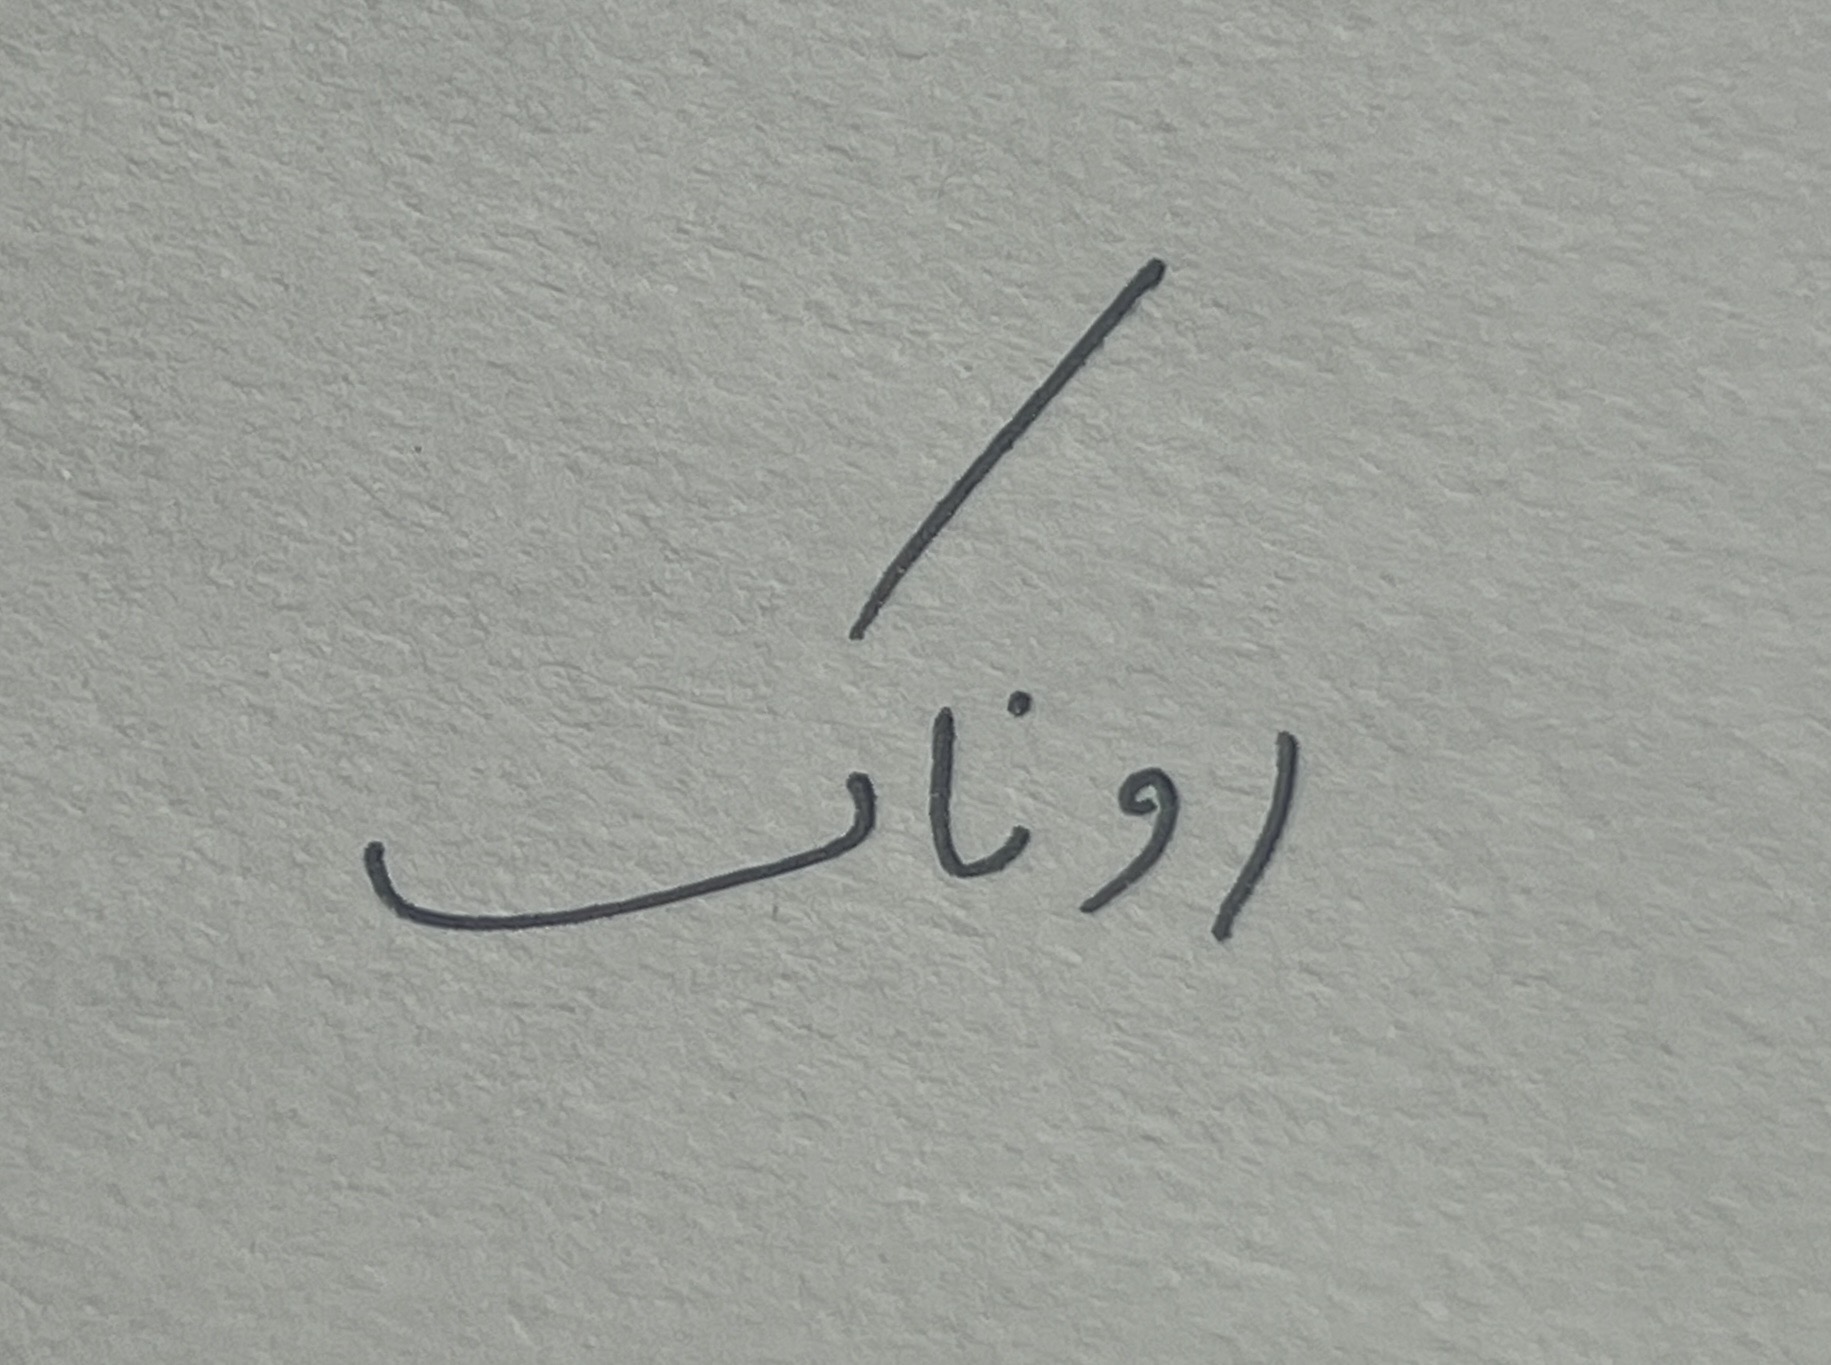 اوناک